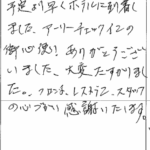 予定より早くホテルに到着し
ました、アーリーチェックインの
御心使い ありがとうござい
いました、大変たすかりまし
た。フロント、レストラン、スタッフ
の心づかい感謝いたします。